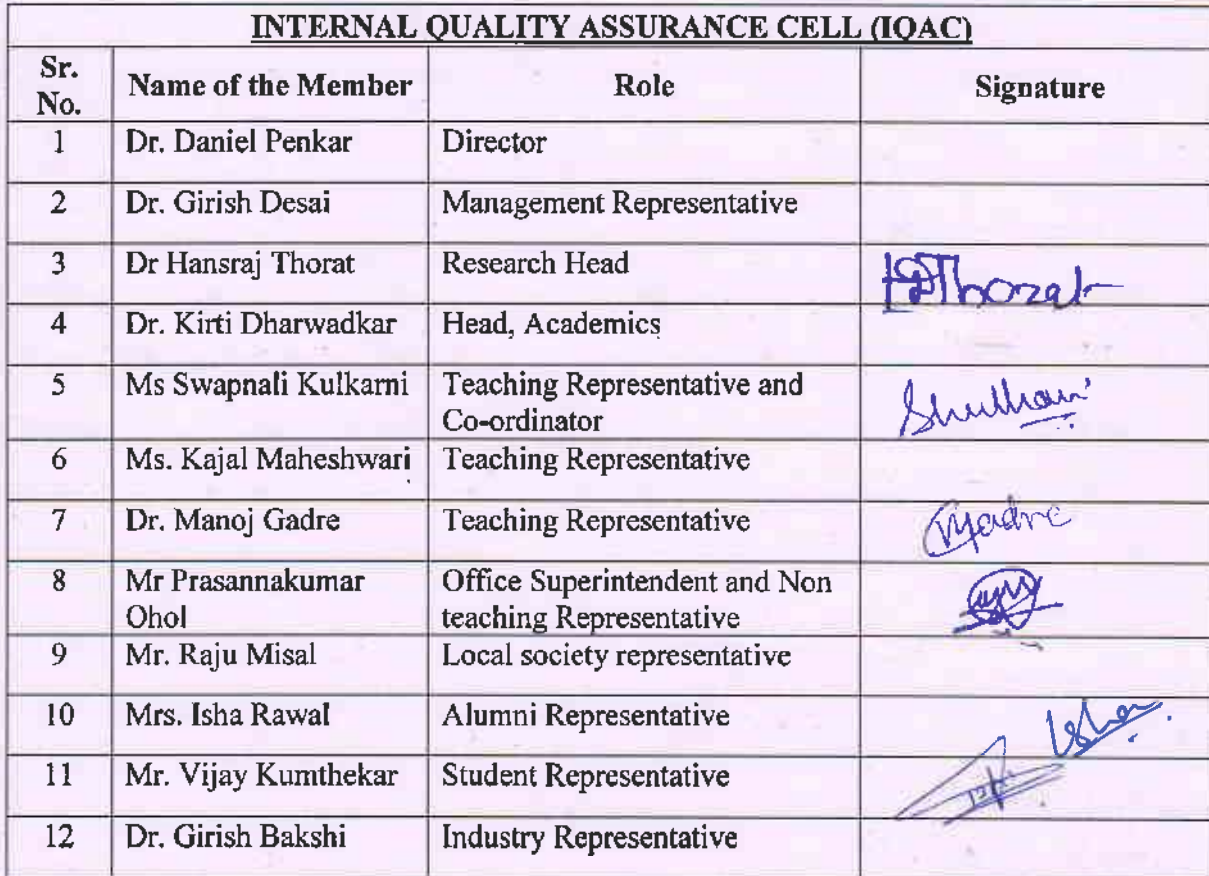 INTERNAL QUALITY ASSURANCE CELL (IQAC)
Sr. No. Name of the Member Role Signature
1 Dr. Daniel Penkar Director
2 Dr. Girish Desai Management Representative
3 Dr Hansraj Thorat Research Head HDThorat
4 Dr. Kirti Dharwadkar Head, Academics
5 Ms Swapnali Kulkarni Teaching Representative and
Co-ordinator
6 Ms. Kajal Maheshwari Teaching Representative
7 Dr. Manoj Gadre Teaching Representative
8 Mr Prasannakumar Office Superintendent and Non
Ohol teaching Representative
9 Mr. Raju Misal Local society representative
10 Mrs. Isha Rawal Alumni Representative
11 Mr. Vijay Kumthekar Student Representative
12 Dr. Girish Bakshi Industry Representative